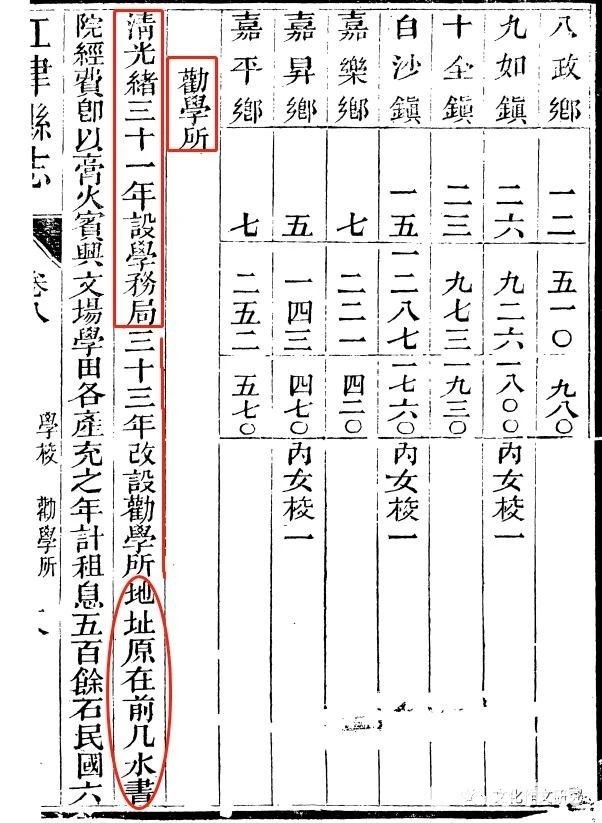 八政鄉 一二 五一〇 九八〇
九如鎮 二六 九二六 一八〇〇 內女校一
十全鎮 二三 九七三 一九三〇
白沙鎮 一五 一二八七 一七六〇 內女校一
嘉樂鄉 七 二二一 四二〇
嘉昇鄉 五 一四三 四七〇 內女校一
嘉平鄉 七 二五二 五七〇
勸學所
清光緒三十一年設學務局三十三年改設勸學所地址原在前几水書
院經費卽以膏火賓興文場學田各產充之年計租息五百餘石民國六
江津縣志 卷八 學校 勸學所